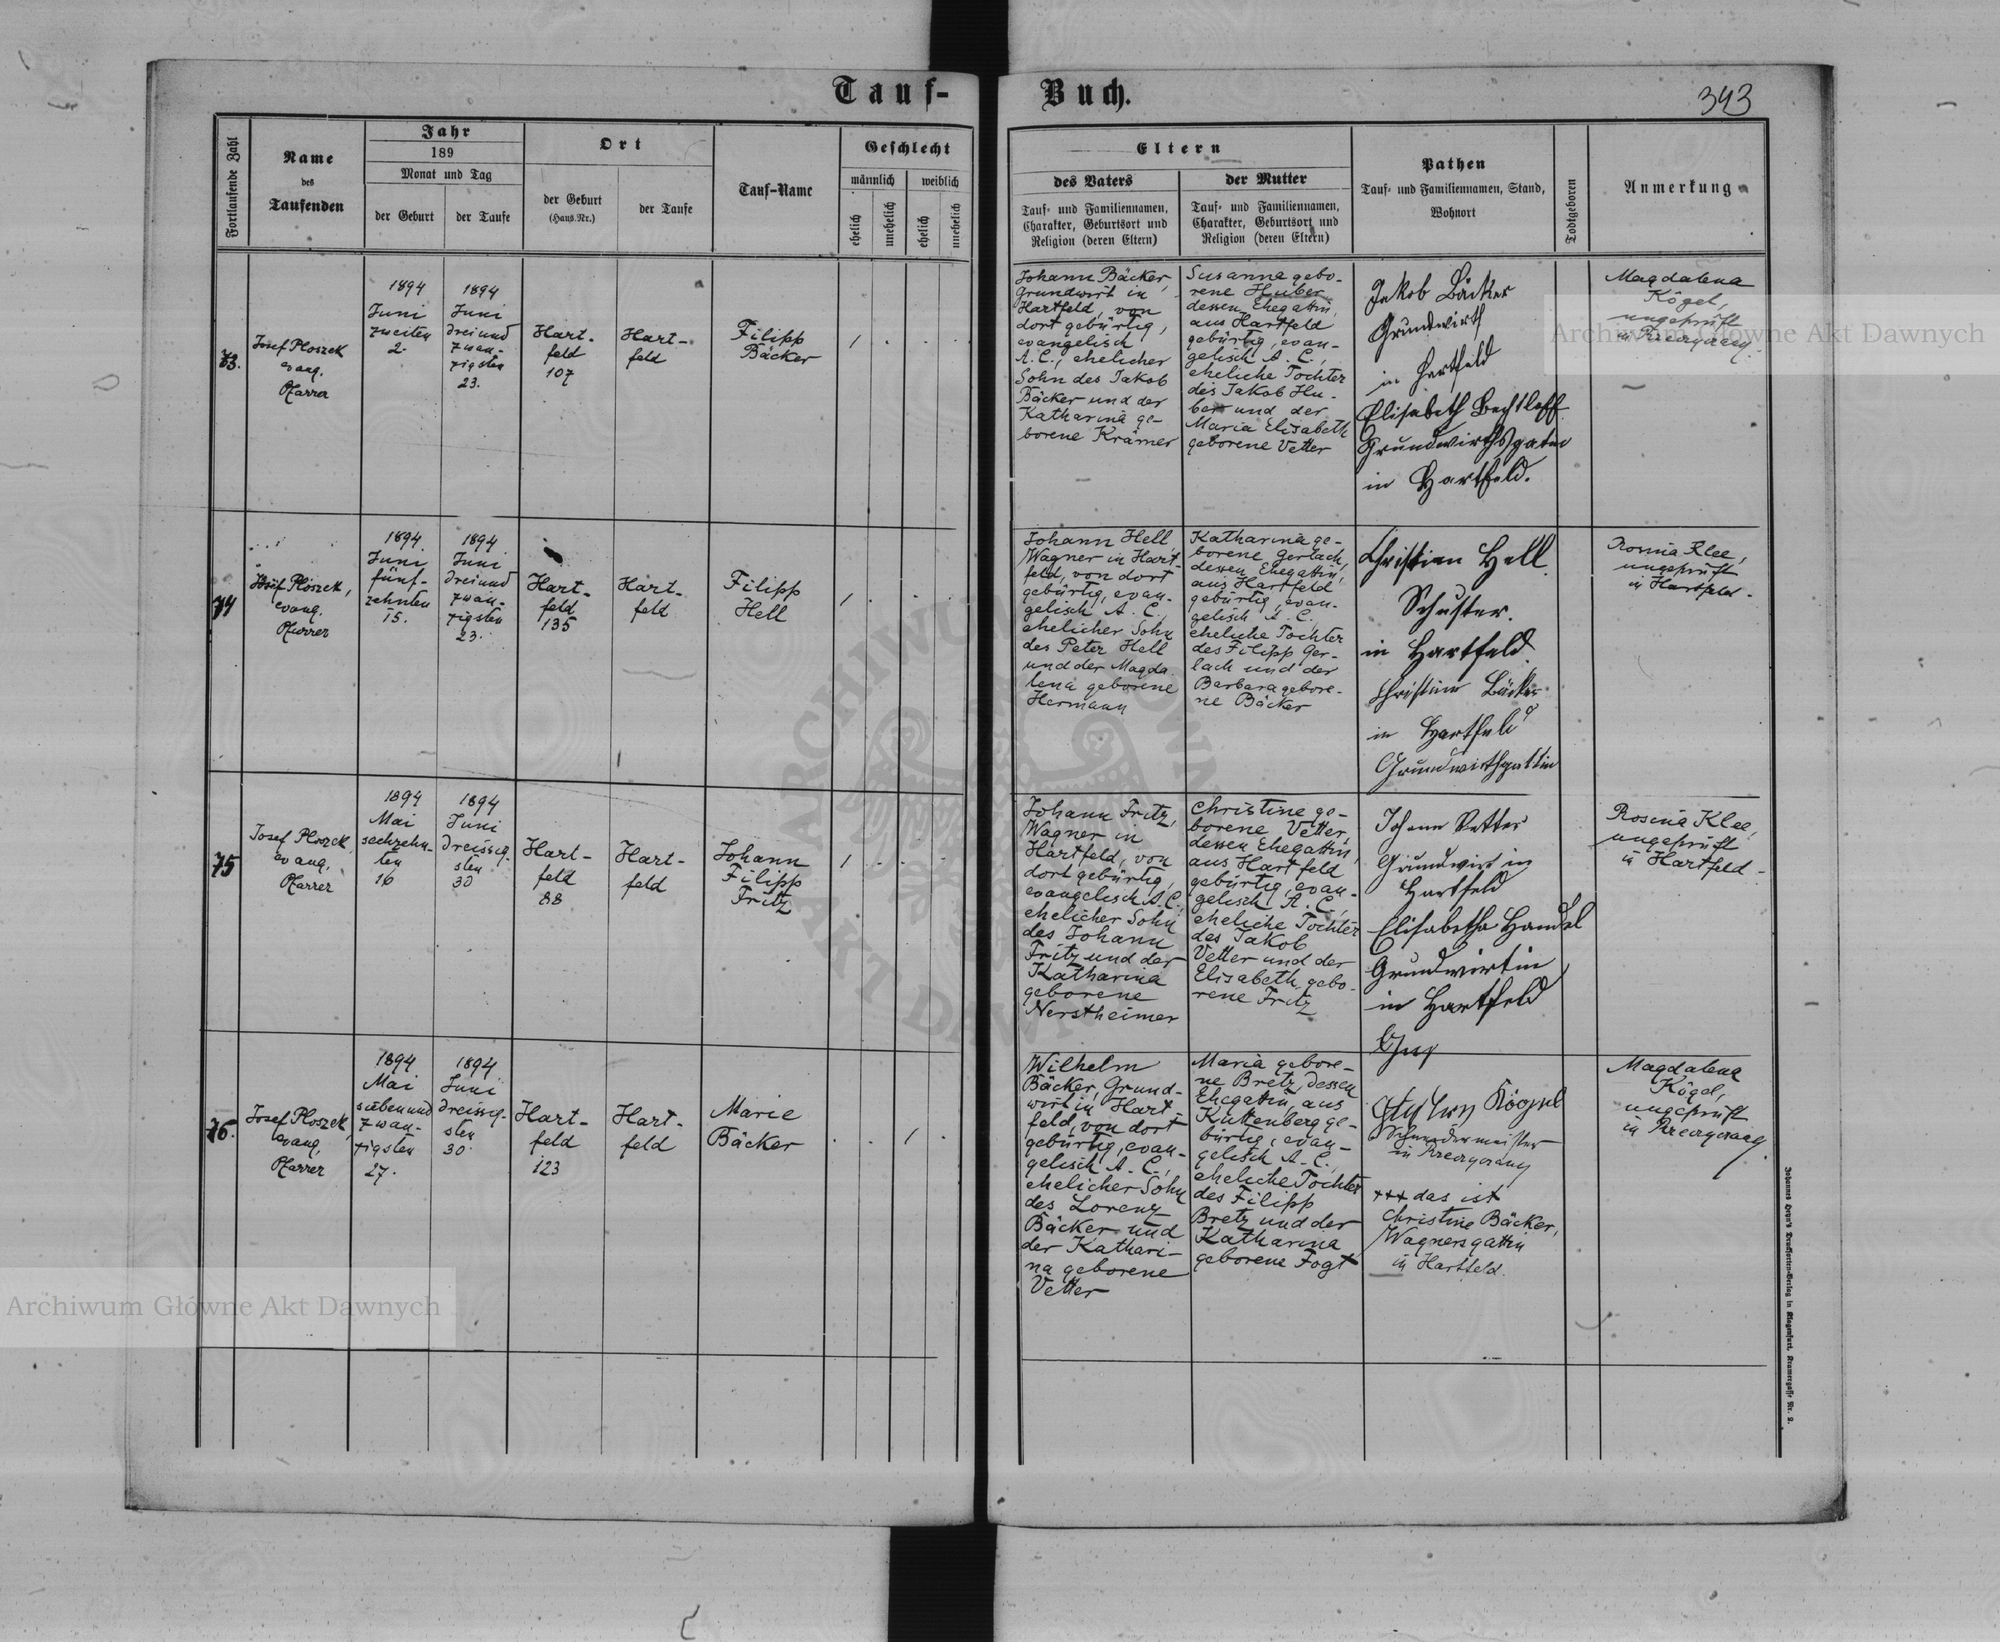 Tauf-
Buch.
343
Fortlaufende Zahl
Name
des
Taufenden
Jahr
189
Monat und Tag
der Geburt
der Taufe
Ort
der Geburt
(Haus-Nr.)
der Taufe
Tauf-Name
Geschlecht
männlich
weiblich
ehelich
unehelich
ehelich
unehelich
Eltern
des Vaters
Tauf- und Familiennamen,
Charakter, Geburtsort und
Religion (deren Eltern)
der Mutter
Tauf- und Familiennamen,
Charakter, Geburtsort und
Religion (deren Eltern)
Pathen
Tauf- und Familiennamen, Stand,
Wohnort
Todtgeboren
Anmerkung
73.
Josef Ploszek
evang.
Pfarrer
1894
Juni
zweiten
2.
1894
Juni
dreiund
zwan-
zigsten
23.
Hart-
feld
107
Hart-
feld
Filipp
Bäcker
1
Johann Bäcker,
Grundwirt in
Hartfeld, von
dort gebürtig,
evangelisch
A. C., ehelicher
Sohn des Jakob
Bäcker und der
Katharina ge-
borene Krämer
Susanna gebo-
rene Huber
dessen Ehegattin,
aus Hartfeld
gebürtig, evan-
gelisch A. C.,
eheliche Tochter
des Jakob Hu-
ber und der
Maria Elisabeth
geborene Vetter
Jakob Bäcker
Grundwirth
in Hartfeld
Elisabeth Bechtloff
Grundwirthsgatin
in Hartfeld.
Magdalena
Kögel,
ungeprüft
in
74
Josef Ploszek,
evang.
Pfarrer
1894
Juni
fünf-
zehnten
15.
1894
Juni
dreiund
zwan-
zigsten
23.
Hart-
feld
135
Hart-
feld
Filipp
Hell
1
Johann Hell
Wagner in Hart-
feld, von dort
gebürtig, evan-
gelisch A. C.,
ehelicher Sohn
des Peter Hell
und der Magda
lena geborene
Hermann
Katharina ge-
borene Gerlach,
dessen Ehegattin,
aus Hartfeld
gebürtig, evan-
gelisch A. C.,
eheliche Tochter
des Filipp Ger-
lach und der
Barbara gebore-
ne Bäcker
Christian Hell
Schuster.
in Hartfeld.
Christine Bäcker
in Hartfeld
Grundwirthgattin
Rosina Klee,
ungeprüft
in Hartfeld.
75
Josef Ploszek
evang.
Pfarrer
1894
Mai
sechzehn-
ten
16
1894
Juni
dreissig-
sten
30
Hart-
feld
88
Hart-
feld
Johann
Filipp
Fritz
1
Johann Fritz,
Wagner in
Hartfeld, von
dort gebürtig,
evangelisch A.C.,
ehelicher Sohn
des Johann
Fritz und der
Katharina
geborene
Nerstheimer
Christine ge-
borene Vetter,
dessen Ehegattin,
aus Hartfeld
gebürtig, evan-
gelisch A. C.,
eheliche Tochter
des Jakob
Vetter und der
Elisabeth gebo-
rene Fritz
Johann Vetter
Grundwirt in
Hartfeld
Elisabetha Handel
Grundwirtin
in Hartfeld
Rosina Klee,
ungeprüft
in Hartfeld.
76.
Josef Ploszek,
evang.
Pfarrer
1894
Mai
siebenund
zwan-
zigsten
27.
1894
Juni
dreissig-
sten
30.
Hart-
feld
123
Hart-
feld
Marie
Bäcker
1
Wilhelm
Bäcker, Grund-
wirt in Hart-
feld, von dort
gebürtig, evan-
gelisch A. C.,
ehelicher Sohn
des Lorenz
Bäcker und
der Kathari-
na geborene
Vetter
Maria gebore-
ne Bretz, dessen
Ehegattin, aus
Kuttenberg ge-
bürtig, evan-
gelisch A. C.,
eheliche Tochter
des Filipp
Bretz und der
Katharina
geborene Fogt
Kögel
Schneidermeister
in
+++ das ist
Christine Bäcker,
Wagnersgattin
in Hartfeld.
Magdalena
Kögel,
ungeprüft
in
Johannes Heyn's Drucksorten-Verlag in Klagenfurt, Kramergasse Nr. 2.
Archiwum Główne Akt Dawnych
Archiwum Główne Akt Dawnych